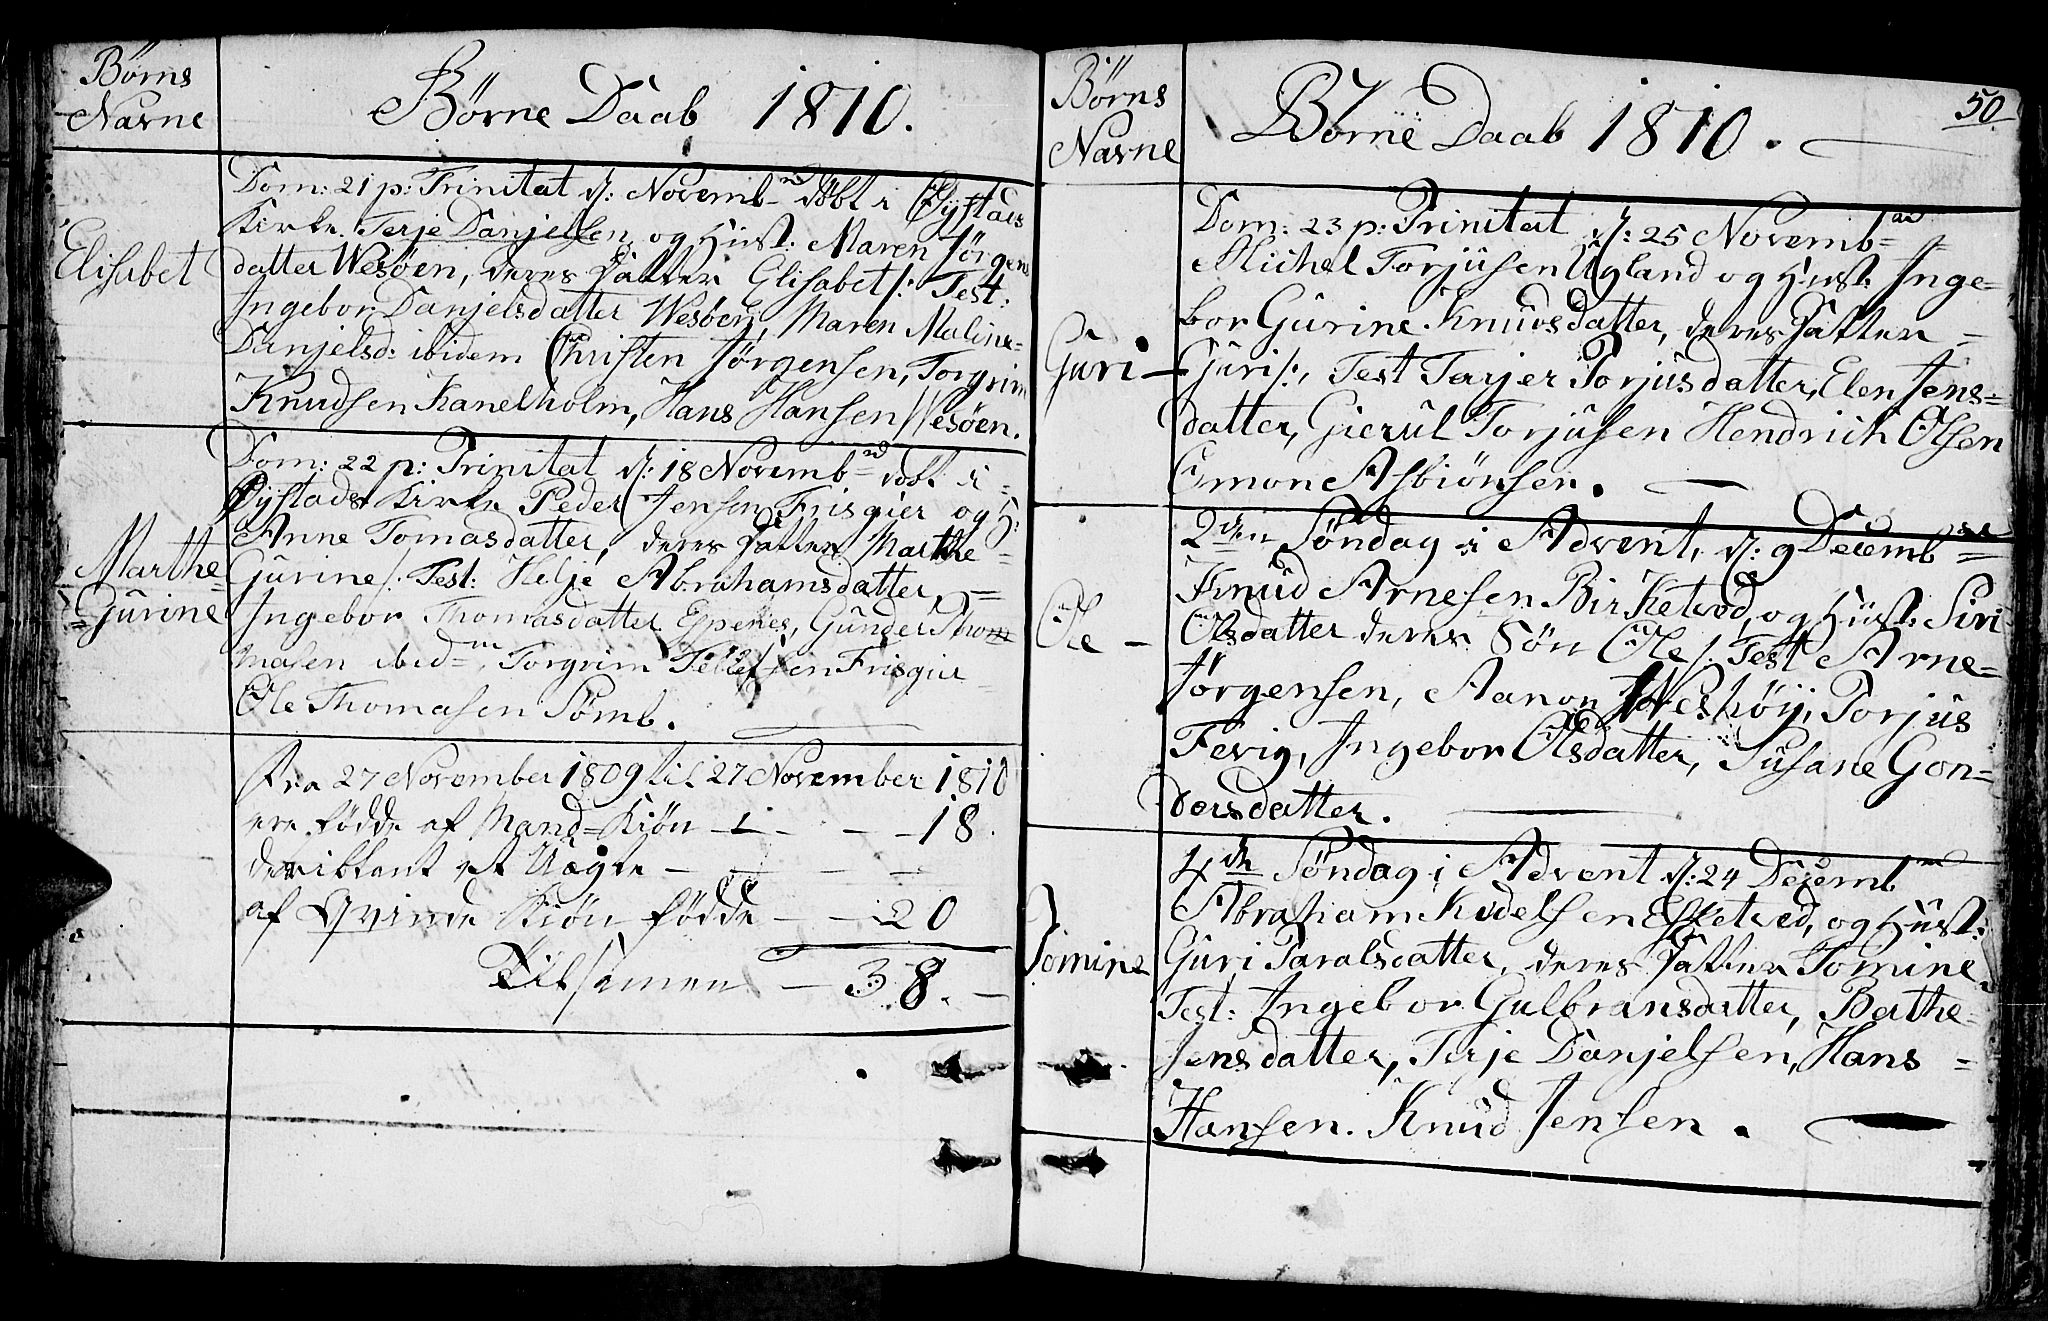 Børns
Navne
Børne Daab 1810.
Dom: 21 p: Trinitat d: Novemb døbt i Øÿstads
Kirke Terje Danjelsen og Hust: Maren Jørgens
Elisabet
datter Wesøen, deres Datter Elisabet /: Test:
Ingebor Danjelsdatter Wesøen, Maren Maline
Danjelsd: ibidem Christen Jørgensen, Torgrim
Knudsen Kanelholm, Hans Hansen Wesøen.
Dom: 22 p: Trinitat d: 18 Novemb døbt i
Øÿstads Kirke Peder Jensen Frisgier og H:
Anne Tomasdatter, deres Datter Marthe
Marthe
Gurine
Gurine /: Test: Helje Abrahamsdatter,
Ingebor Thomasdatter Espenes, Gunder Thom
masen ibid Torgrim Tellefsen Frisgier
Ole Thomasen Sømb.
Fra 27 November 1809 til 27 November 1810
ere fødde af Mand=Kiøn - 18.
deriblant et Uægte
af Qvinde Kiøn fødde - 20
Tilsamen - 38.
50
Børns
Navne
Børne Daab 1810.
Dom: 23 p: Trinitat d: 25 Novemb
Michel Torjusen Ugland og Hust: Inge=
bor Gurine Knudsdatter, deres Datter
Guri
Guri /:, Test Terjer Torjusdatter, Elen Jens=
datter, Gierul Torjusen Hendrich Olsen
Omon Asbiönsen.
2den Søndag i Advent, d: 9 Decemb
Knud Arnesen Birketved, og Hust: Siri
Ole
Olsdatter deres Søn Ole /: Test Arne
Jørgensen, Aanon Weshøÿ, Torjus
Fevig, Ingebor Olsdatter, Susane Gon=
dersdatter.
4de Søndag i Advent d: 24 Decemb
Abraham Kedelsen Esketved, og Hust:
Tomine
Guri Taralsdatter, deres Datter Tomine
Test: Ingebor Gulbransdatter, Berthe
Jensdatter, Terje Danjelsen, Hans
Hansen. Knud Jensen.